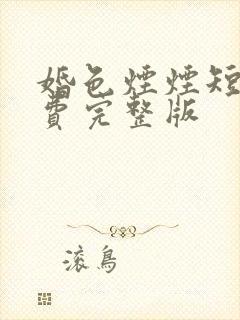 婚色煙煙短
費完整版
滚鳥